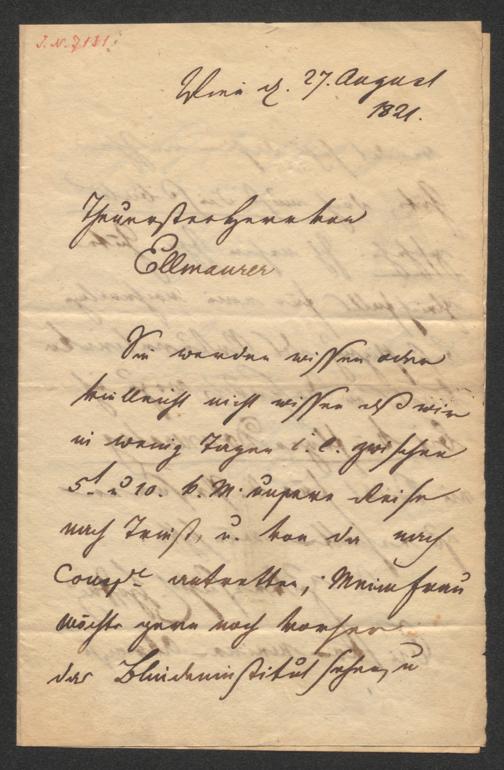 J. N. 7131
Wien d. 27. August
1821.
Theuerster Herr von
Ellmaurer
Sie werden wissen oder
vielleicht nicht wissen daß wir
in wenig Tagen i. e. zwischen
5t. u 10. k. M. unsere Reise
nach Triest, u. von da nach
antretten, Meine Frau
möchte gern noch vorher
das Blindeninstitut sehen, u